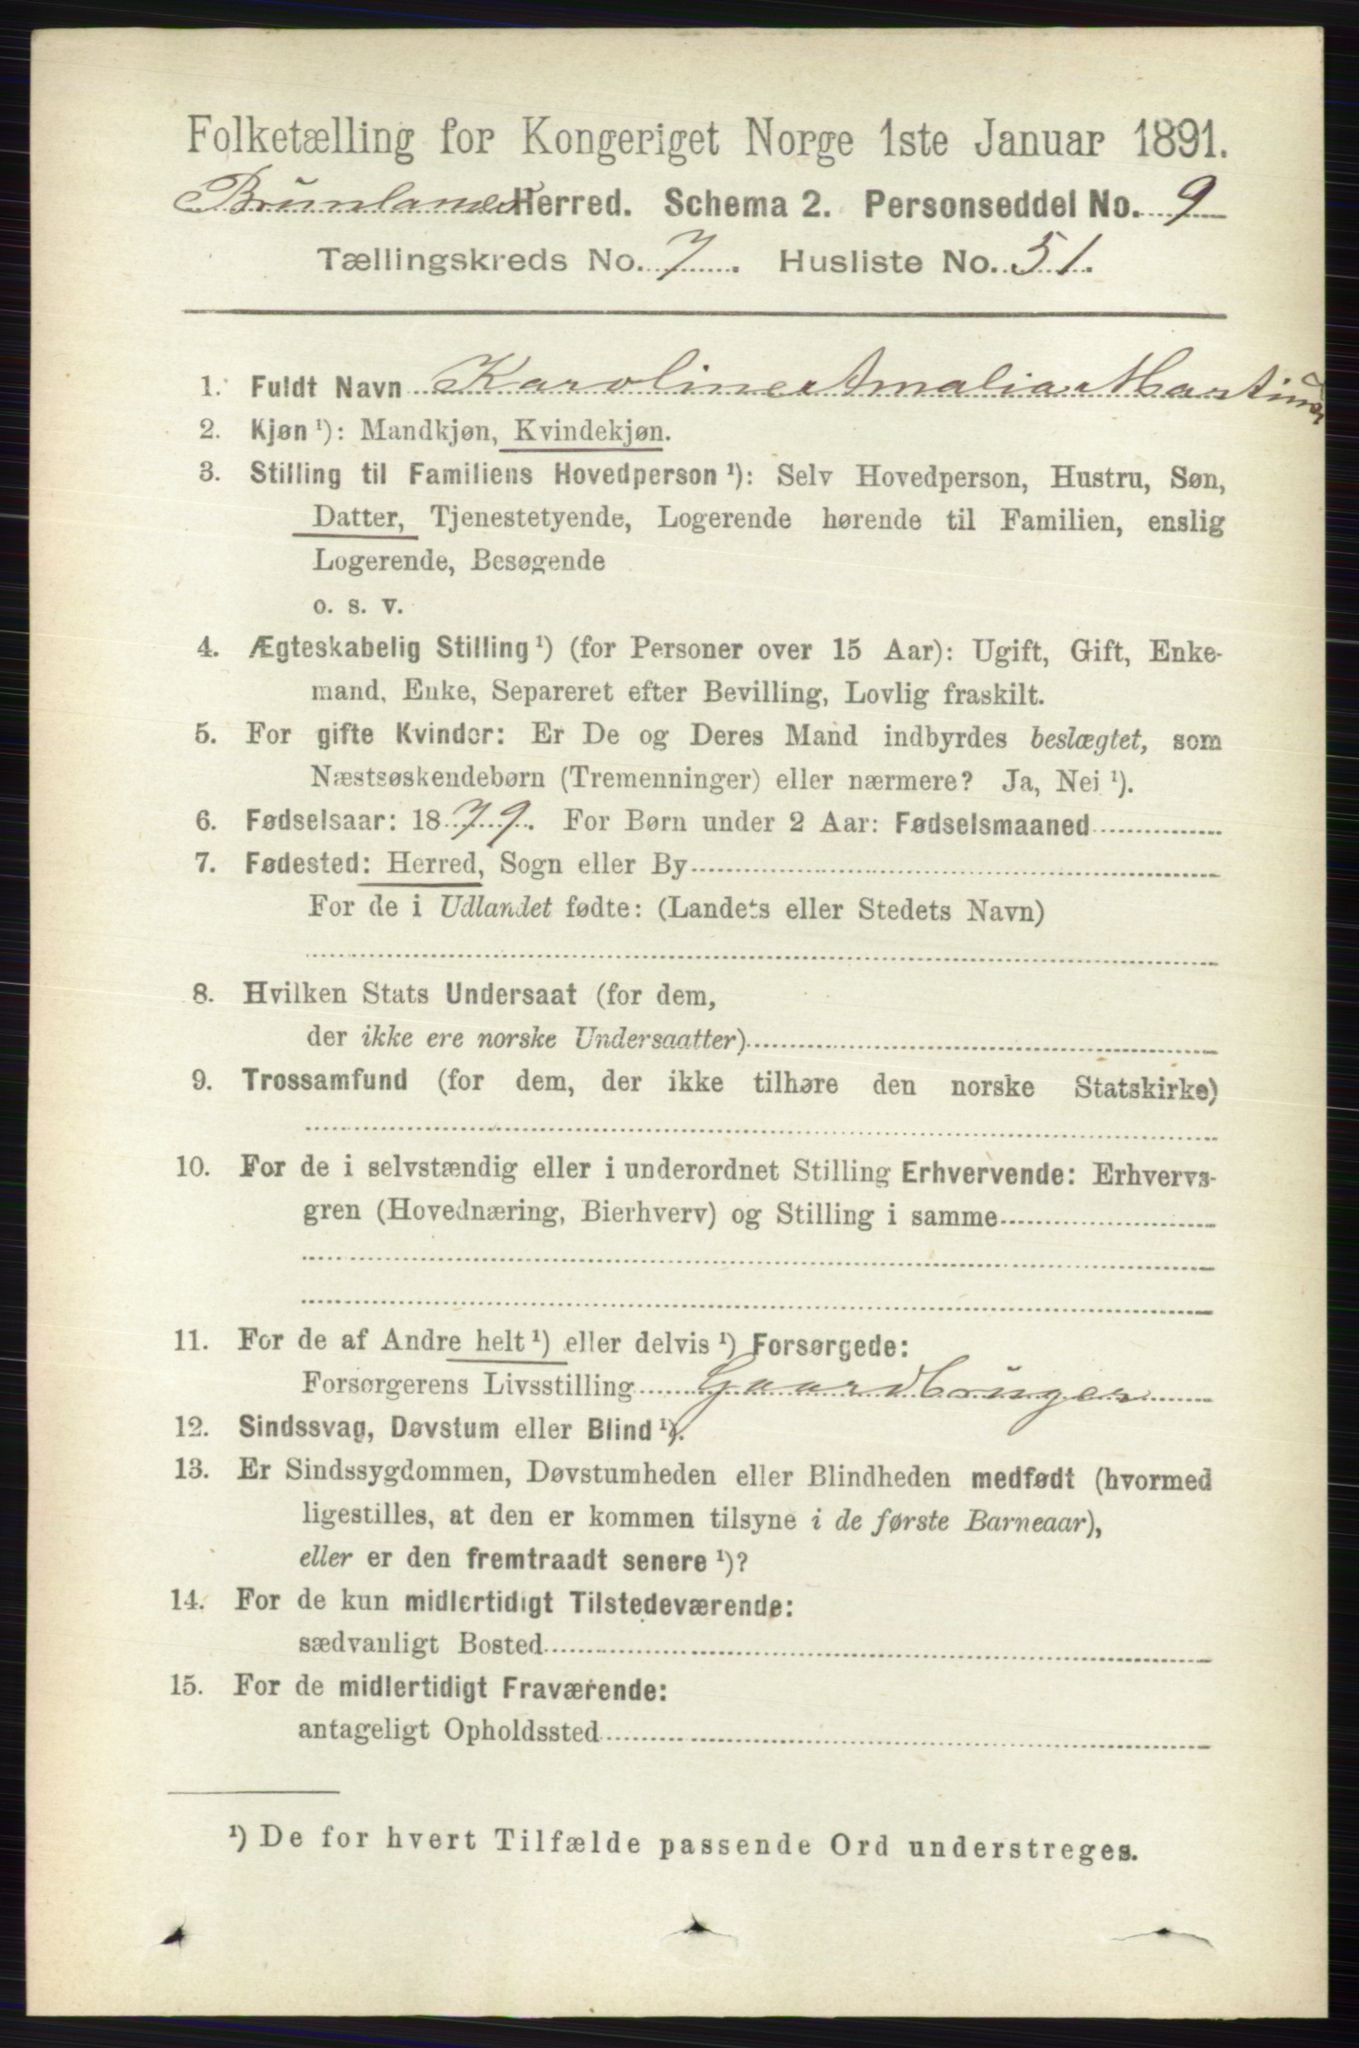 Folketælling for Kongeriget Norge 1ste Januar 1891.
Brunlanes Herred. Schema 2. Personseddel No. 9
Tællingskreds No. 7. Husliste No. 51.
1. Fuldt Navn Karoline Amalia Martinsen
2. Kjøn ¹): Mandkjøn, Kvindekjøn.
3. Stilling til Familiens Hovedperson ¹): Selv Hovedperson, Hustru, Søn,
Datter, Tjenestetyende, Logerende hørende til Familien, enslig
Logerende, Besøgende
o. s. v.
4. Ægteskabelig Stilling ¹) (for Personer over 15 Aar): Ugift, Gift, Enke-
mand, Enke, Separeret efter Bevilling, Lovlig fraskilt.
5. For gifte Kvinder: Er De og Deres Mand indbyrdes beslægtet, som
Næstsøskendebørn (Tremenninger) eller nærmere? Ja, Nei ¹).
6. Fødselsaar: 1879. For Børn under 2 Aar: Fødselsmaaned
7. Fødested: Herred, Sogn eller By
For de i Udlandet fødte: (Landets eller Stedets Navn)
8. Hvilken Stats Undersaat (for dem,
der ikke ere norske Undersaatter)
9. Trossamfund (for dem, der ikke tilhøre den norske Statskirke)
10. For de i selvstændig eller i underordnet Stilling Erhvervende: Erhvervs-
gren (Hovednæring, Bierhverv) og Stilling i samme
11. For de af Andre helt ¹) eller delvis ¹) Forsørgede:
Forsørgerens Livsstilling Gaardbruger
12. Sindssvag, Døvstum eller Blind ¹).
13. Er Sindssygdommen, Døvstumheden eller Blindheden medfødt (hvormed
ligestilles, at den er kommen tilsyne i de første Barneaar),
eller er den fremtraadt senere ¹)?
14. For de kun midlertidigt Tilstedeværende:
sædvanligt Bosted
15. For de midlertidigt Fraværende:
antageligt Opholdssted
¹) De for hvert Tilfælde passende Ord understreges.